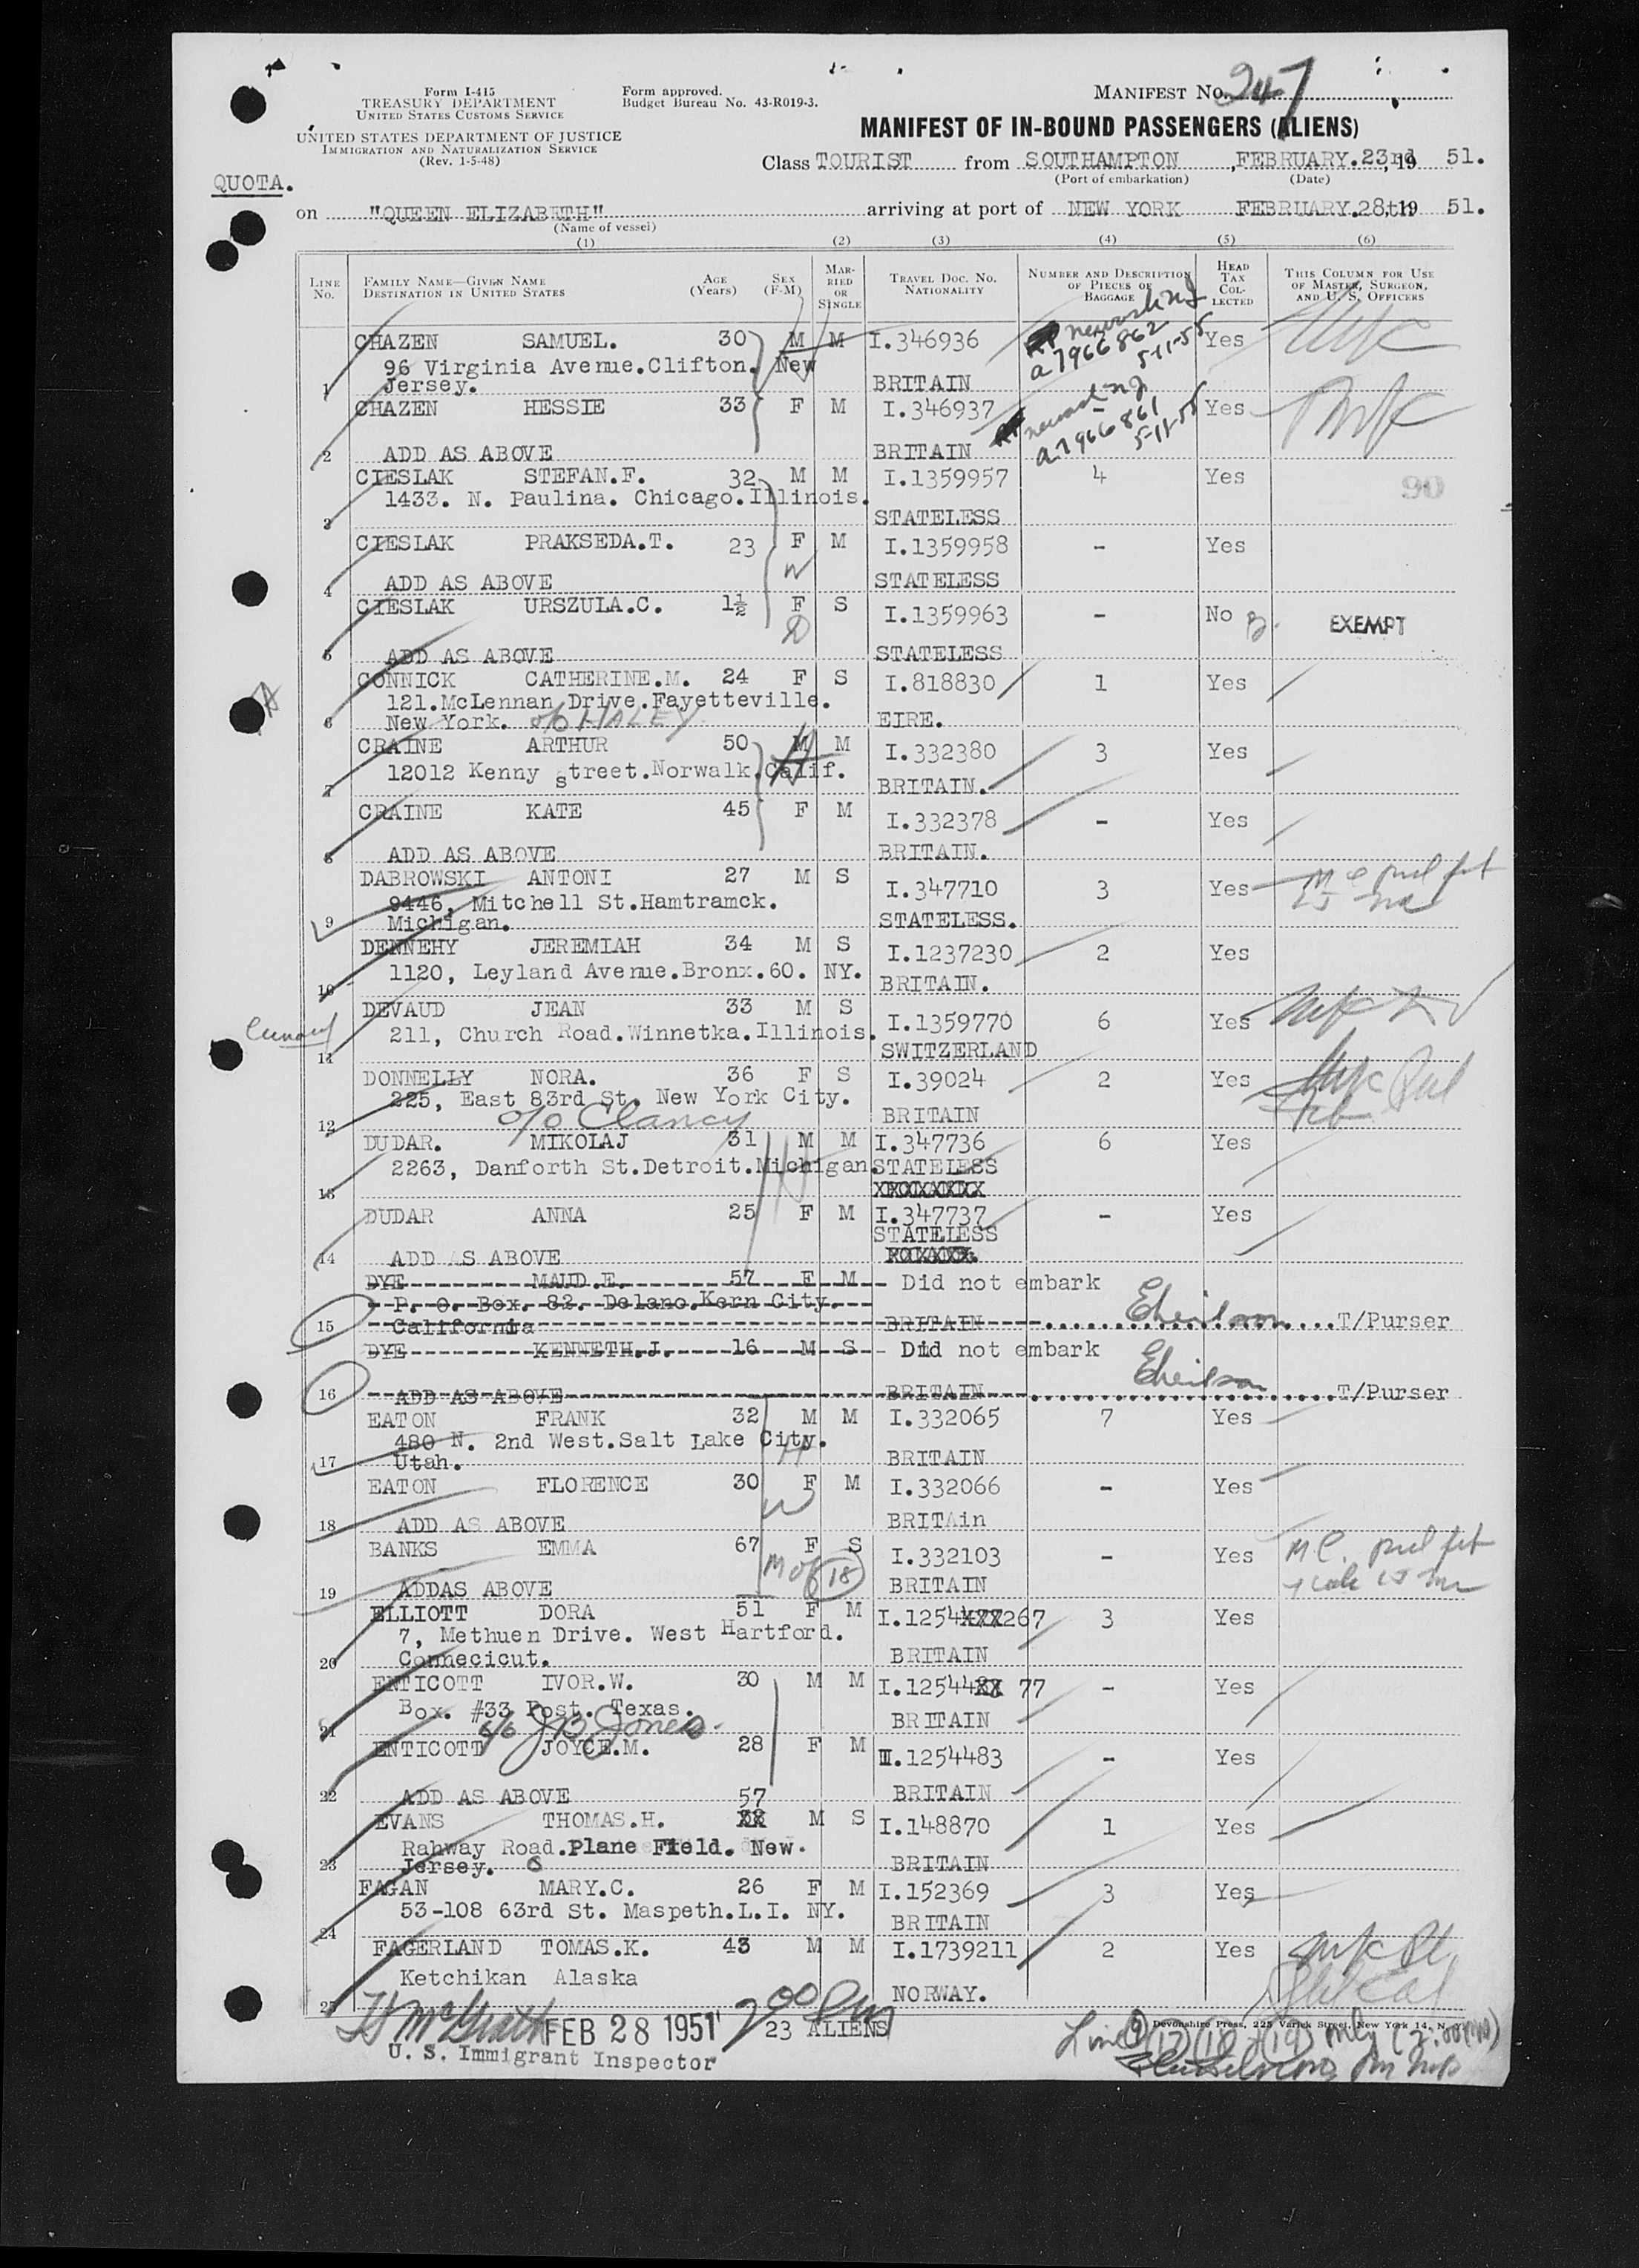 Form I-415
TREASURY DEPARTMENT
UNITED STATES CUSTOMS SERVICE
UNITED STATES DEPARTMENT OF JUSTICE
IMMIGRATION AND NATURALIZATION SERVICE
(Rev. 1-5-48)
Form approved.
Budget Bureau No. 43-R019-3.
MANIFEST No. 247
MANIFEST OF IN-BOUND PASSENGERS (ALIENS)
Class TOURIST from SOUTHAMPTON, FEBRUARY.23rd, 19 51.
(Port of embarkation) (Date)
QUOTA.
on "QUEEN ELIZABETH" arriving at port of NEW YORK FEBRUARY.28th 19 51.
(Name of vessel)
(1) (2) (3) (4) (5) (6)
LINE NO. FAMILY NAME—GIVEN NAME DESTINATION IN UNITED STATES AGE (Years) SEX (F-M) MARRIED OR SINGLE TRAVEL DOC. NO. NATIONALITY NUMBER AND DESCRIPTION OF PIECES OF BAGGAGE HEAD TAX COLLECTED THIS COLUMN FOR USE OF MASTER, SURGEON, AND U. S. OFFICERS
CHAZEN SAMUEL. 30 M M I.346936 newark nj a7966862 5-11-55 Yes
96 Virginia Avenue.Clifton. New
1 Jersey. BRITAIN
CHAZEN HESSIE 33 F M I.346937 newark nj a7966861 5-11-55 Yes
2 ADD AS ABOVE BRITAIN
CIESLAK STEFAN.F. 32 M M I.1359957 4 Yes 90
1433. N. Paulina. Chicago.Illinois.
3 STATELESS
CIESLAK PRAKSEDA.T. 23 F M I.1359958 - Yes
W
4 ADD AS ABOVE STATELESS
CIESLAK URSZULA.C. 1½ F S I.1359963 - No EXEMPT
D
5 ADD AS ABOVE STATELESS
CONNICK CATHERINE.M. 24 F S I.818830 1 Yes
121.McLennan Drive.Fayetteville.
6 New York. c/o HALEY EIRE.
CRAINE ARTHUR 50 M M I.332380 3 Yes
12012 Kenny street.Norwalk.Calif.
7 BRITAIN.
CRAINE KATE 45 F M I.332378 - Yes
8 ADD AS ABOVE BRITAIN.
DABROWSKI ANTONI 27 M S I.347710 3 Yes
9446, Mitchell St.Hamtramck.
9 Michigan. STATELESS.
DENNEHY JEREMIAH 34 M S I.1237230 2 Yes
1120, Leyland Avenue.Bronx.60. NY.
10 BRITAIN.
DEVAUD JEAN 33 M S I.1359770 6 Yes
Cunard 211, Church Road.Winnetka.Illinois.
11 SWITZERLAND
DONNELLY NORA. 36 F S I.39024 2 Yes
225, East 83rd St. New York City.
12 c/o Clancy BRITAIN
DUDAR. MIKOLAJ 31 M M I.347736 6 Yes
2263, Danforth St.Detroit.Michigan STATELESS
13
DUDAR ANNA 25 F M I.347737 - Yes
STATELESS
14 ADD AS ABOVE
DYE MAUD.E. 57 F M Did not embark
P. O. Box. 82. Delano.Kern City.
15 California BRITAIN T/Purser
DYE KENNETH.J. 16 M S Did not embark
16 ADD AS ABOVE BRITAIN T/Purser
EATON FRANK 32 M M I.332065 7 Yes
480 N. 2nd West.Salt Lake City.
H
17 Utah. BRITAIN
EATON FLORENCE 30 F M I.332066 - Yes
W
18 ADD AS ABOVE BRITAin
BANKS EMMA 67 F S I.332103 - Yes
M of 18
19 ADDAS ABOVE BRITAIN
ELLIOTT DORA 51 F M I.1254XXX267 3 Yes
7, Methuen Drive. West Hartford.
20 Connecicut. BRITAIN
ENTICOTT IVOR.W. 30 M M I.12544XX 77 - Yes
Box. #33 Post. Texas.
21 c/o J B Jones. BRITAIN
ENTICOTT JOYCE.M. 28 F M I.1254483 - Yes
22 ADD AS ABOVE BRITAIN
57
EVANS THOMAS.H. XX M S I.148870 1 Yes
Rahway Road.Plane Field. New.
23 Jersey. BRITAIN
FAGAN MARY.C. 26 F M I.152369 3 Yes
53-108 63rd St. Maspeth.L.I. NY.
24 BRITAIN
FAGERLAND TOMAS.K. 43 M M I.1739211 2 Yes
Ketchikan Alaska
25 NORWAY.
McGrath FEB 28 1951 2 00 PM 23 ALIENS
Devonshire Press, 225 Varick Street, New York 14, N.
U. S. Immigrant Inspector